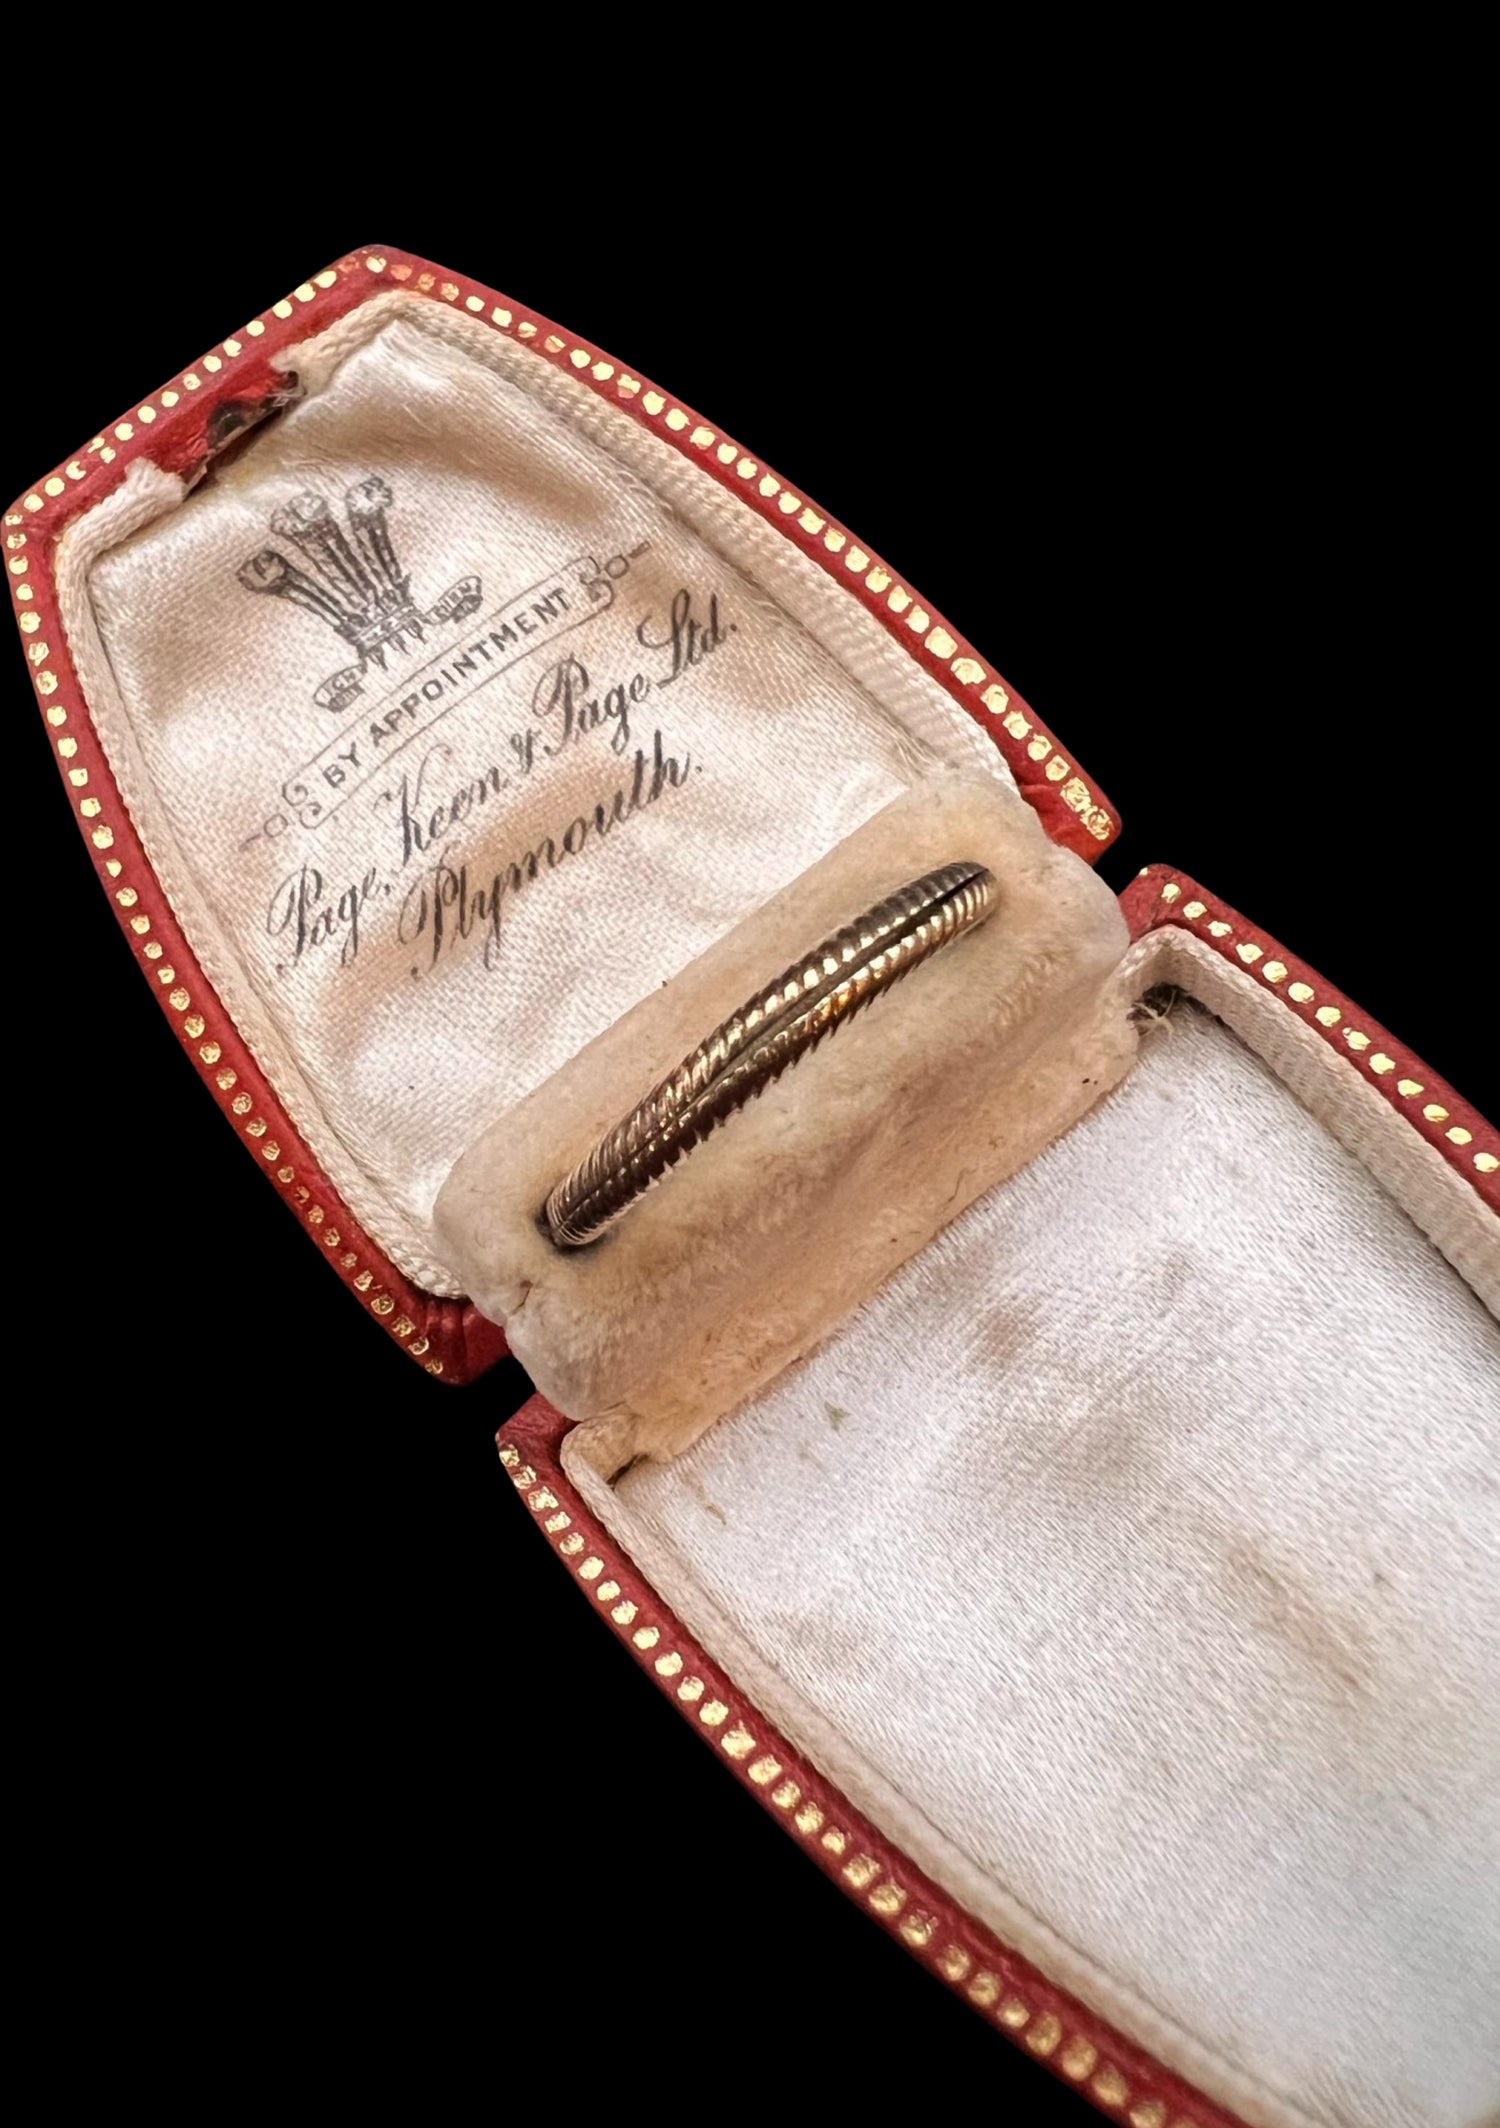 BY APPOINTMENT
Page, Keen & Page Ltd.
Plymouth.